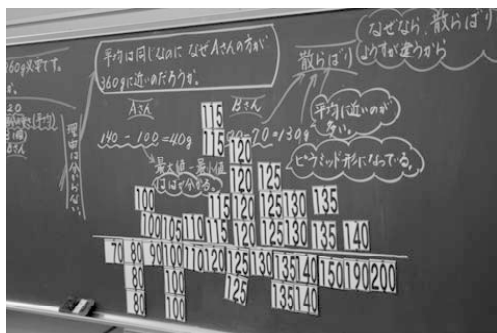 360g必要です。
か。
20
(平均)
Bさん
理由は分からない。
平均は同じなのに なぜAさんの方が
360gに近いのだろうか。
散らばり
なぜなら、散らばり
ようすが違うから
Aさん
Bさん
140 - 100 = 40g
70 = 130g
最大値 - 最小値
はばで分かる。
平均に近いのが
多い。
ピラミッド形になっている。
115
115 120
120 125
100 115 120 125 130 135
100 105 110 115 120 125 130 135 140
70 80 90 100 110 120 125 130 135 140 150 190 200
80 100 125 135 140
80 100